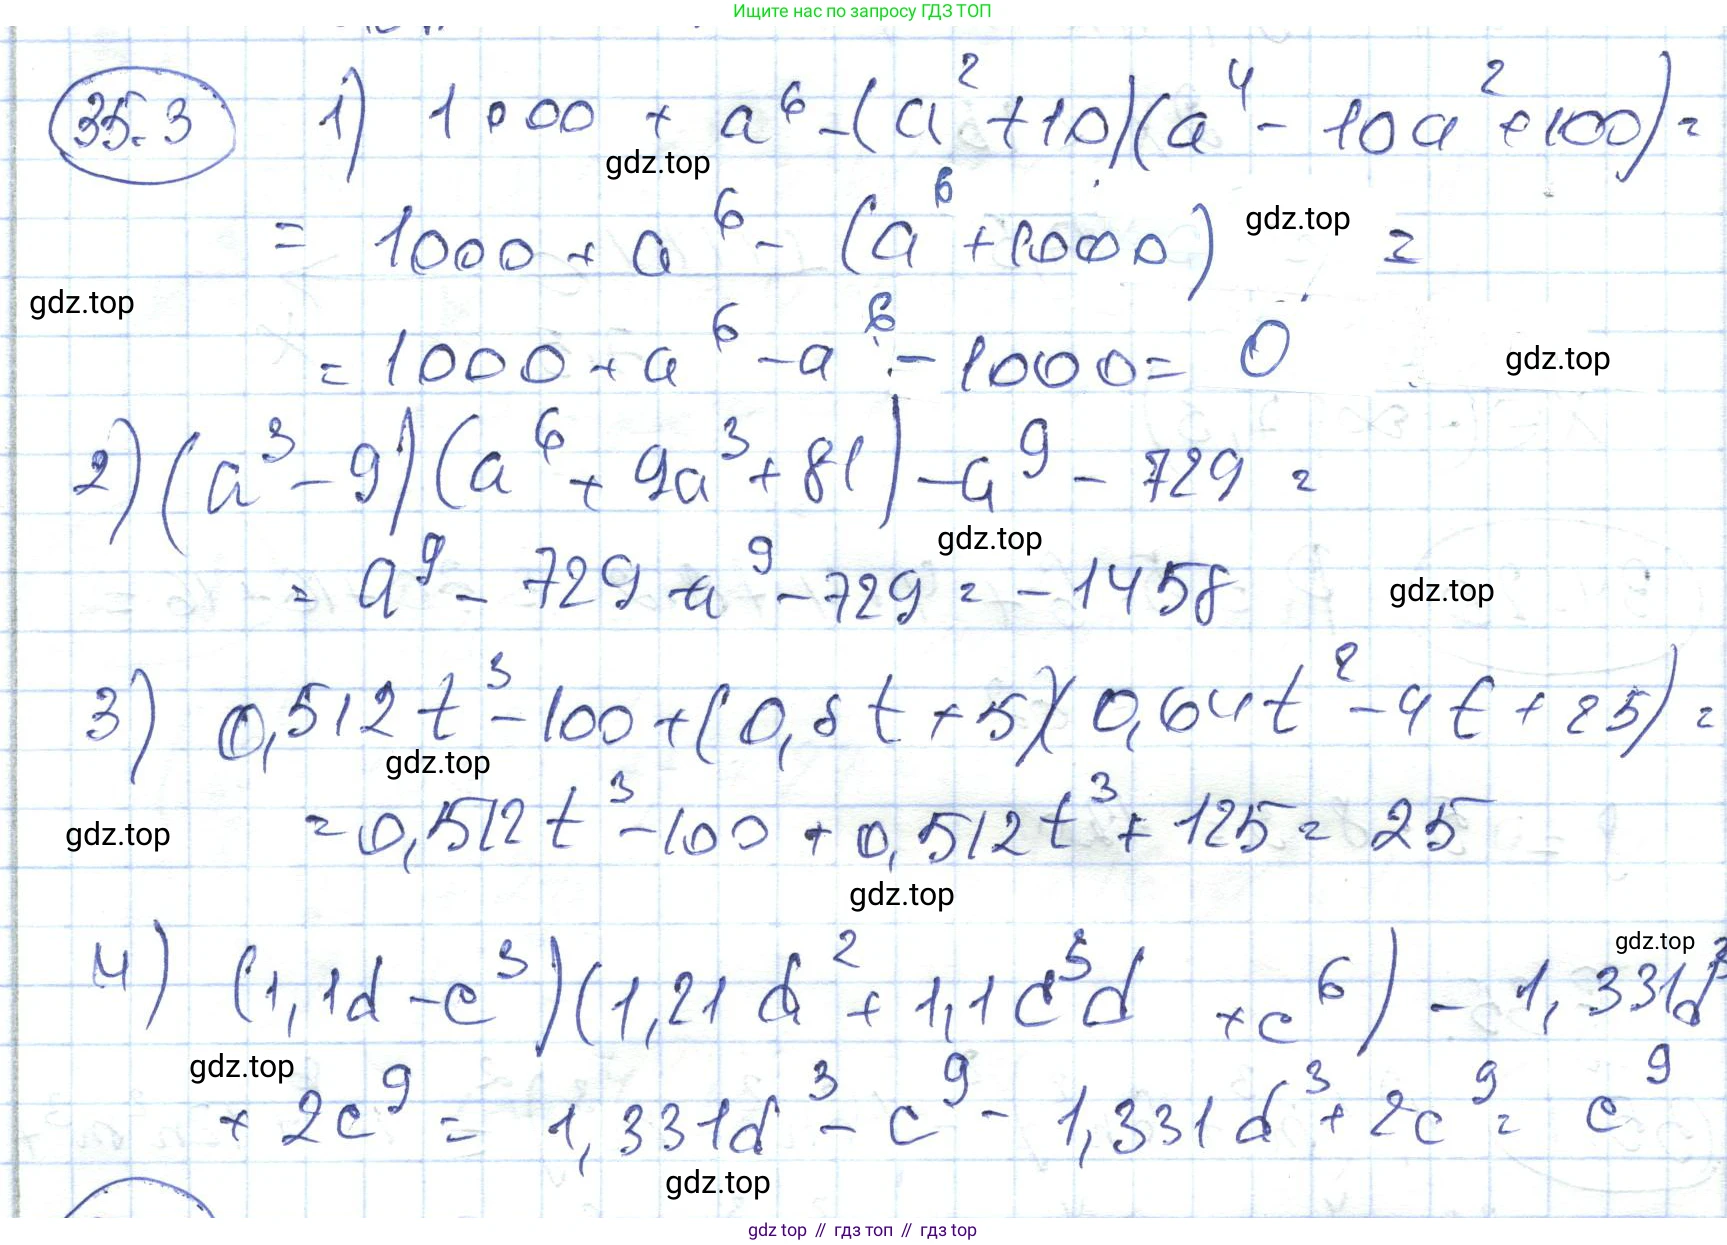 Ищите нас по запросу ГДЗ ТОП
35.3 1) 1000 + a⁶ - (a² + 10)(a⁴ - 10a² + 100) =
gdz.top
= 1000 + a⁶ - (a⁶ + 1000) = gdz.top
gdz.top
= 1000 + a⁶ - a⁶ - 1000 = 0 gdz.top
2) (a³ - 9)(a⁶ + 9a³ + 81) - a⁹ - 729 =
gdz.top
= a⁹ - 729 - a⁹ - 729 = - 1458 gdz.top
3) 0,512t³ - 100 + (0,8t + 5)(0,64t² - 4t + 25) =
gdz.top
= 0,512t³ - 100 + 0,512t³ + 125 = 25
gdz.top
gdz.top
4) (1,1d - c³)(1,21d² + 1,1c³d + c⁶) - 1,331d³
gdz.top
gdz.top
+ 2c⁹ = 1,331d³ - c⁹ - 1,331d³ + 2c⁹ = c⁹
gdz.top
gdz top // гдз топ // gdz top